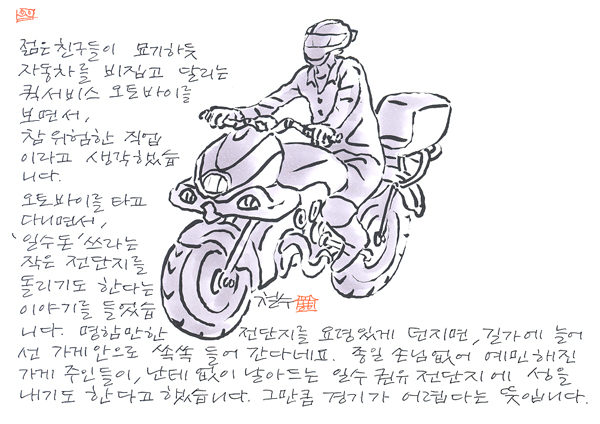 젊은 친구들이 묘기하듯
자동차를 비집고 달리는
퀵서비스 오토바이를
보면서,
참 위험한 직업
이라고 생각했습
니다.
오토바이를 타고
다니면서,
'일수돈' 쓰라는
작은 전단지를
돌리기도 한다는
이야기를 들었습
니다. 명함만한 전단지를 요령있게 던지면, 길가에 늘어
선 가게 안으로 쏙쏙 들어 간다네요. 종일 손님 없어 예민해진
가게 주인들이, 난데 없이 날아드는 일수 권유 전단지에 성을
내기도 한다고 했습니다. 그만큼 경기가 어렵다는 뜻입니다.
철수